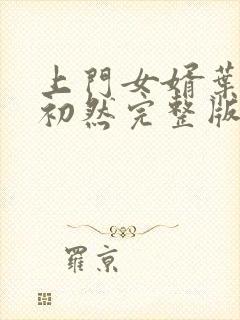 上門女婿葉
初然完整版
羅京